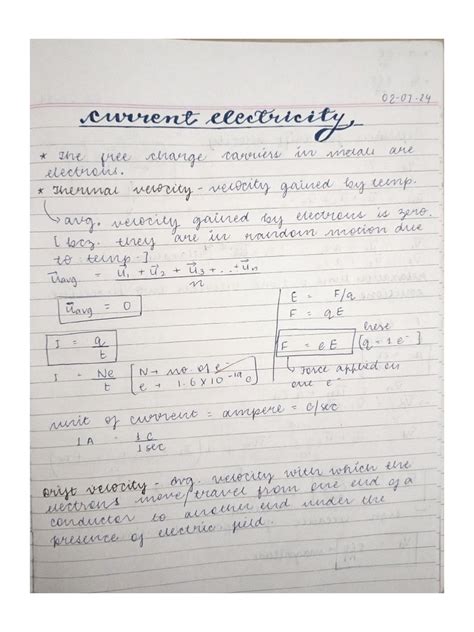 02-07-24
current electricity
* The free charge carriers in metals are
electrons.
* Thermal velocity - velocity gained by temp.
↳ avg. velocity gained by electrons is zero.
[bcz. they are in random motion due
to temp.]
u⃗avg = u⃗1 + u⃗2 + u⃗3 + ... + u⃗n / n
u⃗avg = 0
I = q/t
I = Ne/t [N → no. of e⁻
e → 1.6 X 10⁻¹⁹ C]
E = F/q
F = qE
F = eE [here q = 1e⁻]
↳ Force applied on
one e⁻
unit of current = ampere = C/sec
1A = 1C/1sec
Drift velocity - Avg. velocity with which the
electrons move/travel from one end of a
conductor to another end under the
presence of electric field.